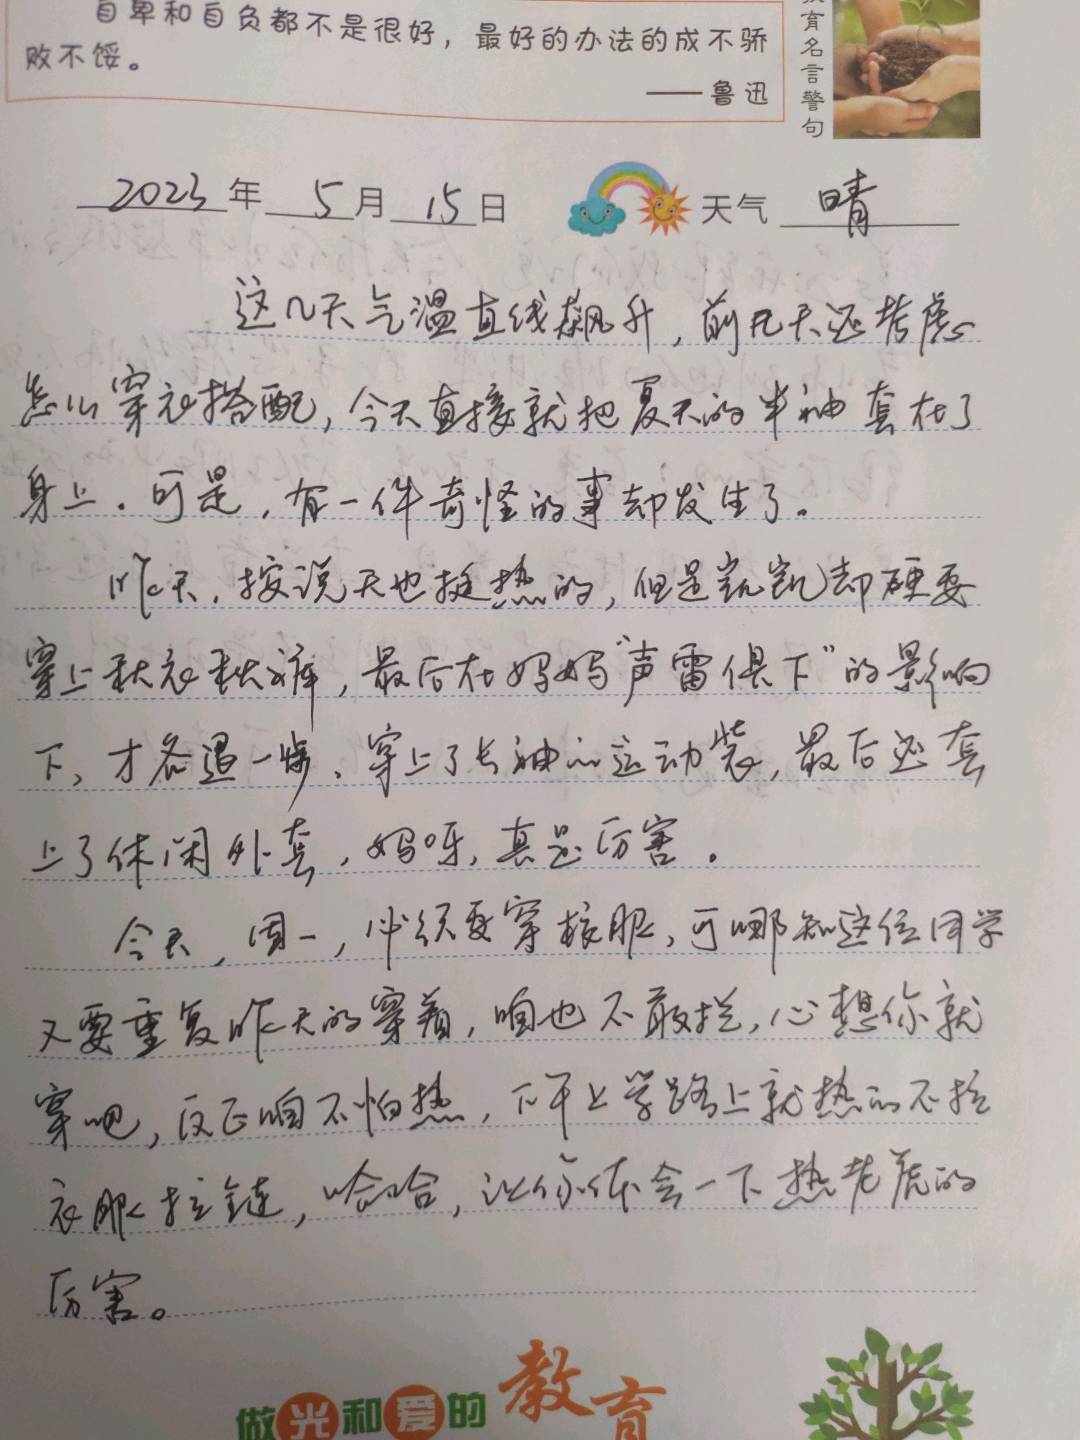 自卑和自负都不是很好，最好的办法的成不骄
败不馁。
——鲁迅
教育名言警句
2023年5月15日 天气 晴
这几天气温直线飙升，前几天还考虑
怎么穿衣搭配，今天直接就把夏天的半袖套在了
身上。可是，有一件奇怪的事却发生了。
昨天，按说天也挺热的，但是凯凯却硬要
穿上秋衣秋裤，最后在妈妈"声雷俱下"的影响
下，才各退一步，穿上了长袖的运动装，最后还套
上了休闲外套，妈呀，真是厉害。
今天，周一，必须要穿校服，可哪知这位同学
又要重复昨天的穿着，咱也不敢拦，心想你就
穿吧，反正咱不怕热，下午上学路上就热的不拉
衣服拉链，哈哈，让你体会一下热老虎的
厉害。
做光和爱的教育